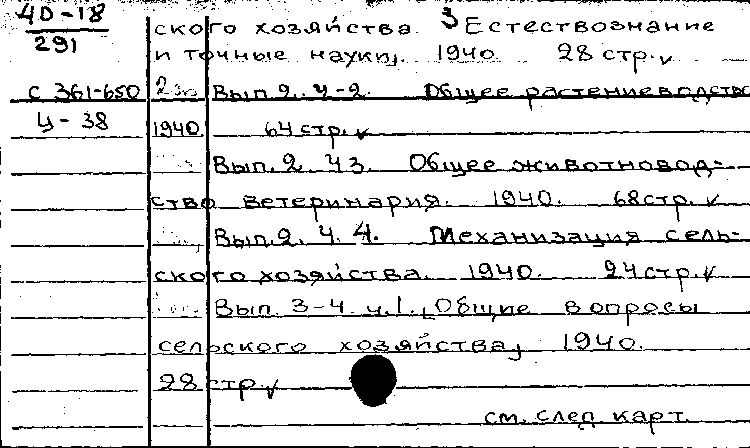 40-18
291
ского хозяйства. 3 Естествознание
и точные науки, 1940 28 стр.
С 361-650 Вып. 2. ч-2. Общее растениеводство
Ц-38 1940. 64 стр.
Вып. 2. ч3. Общее животновод-
ство ветеринария. 1940. 68 стр.
Вып. 2. ч. 4. Механизация сель-
ского хозяйства. 1940. 24 стр.
Вып. 3-4 ч. 1. Общие вопросы
сельского хозяйства, 1940.
28 стр.
см. след. карт.